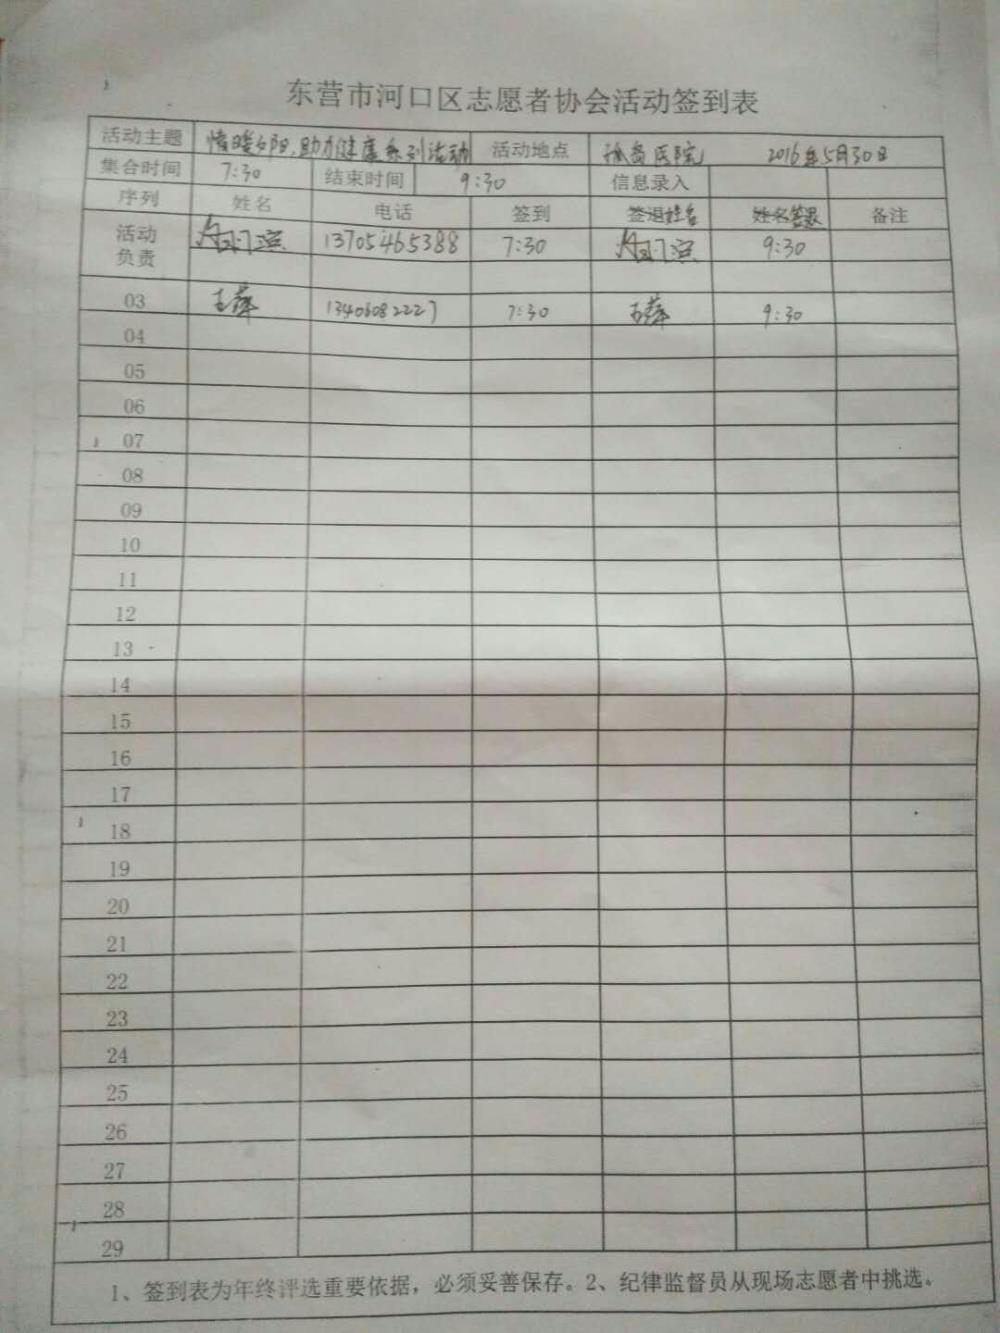 东营市河口区志愿者协会活动签到表
活动主题 情暖夕阳,助力健康系列活动 活动地点 孤岛医院 2016年5月30日
集合时间 7:30 结束时间 9:30 信息录入
序列 姓名 电话 签到 签退姓名 姓名签退 备注
活动负责 13705465388 7:30 9:30
03 王萍 13406082227 7:30 王萍 9:30
04
05
06
07
08
09
10
11
12
13
14
15
16
17
18
19
20
21
22
23
24
25
26
27
28
29
1、签到表为年终评选重要依据，必须妥善保存。2、纪律监督员从现场志愿者中挑选。